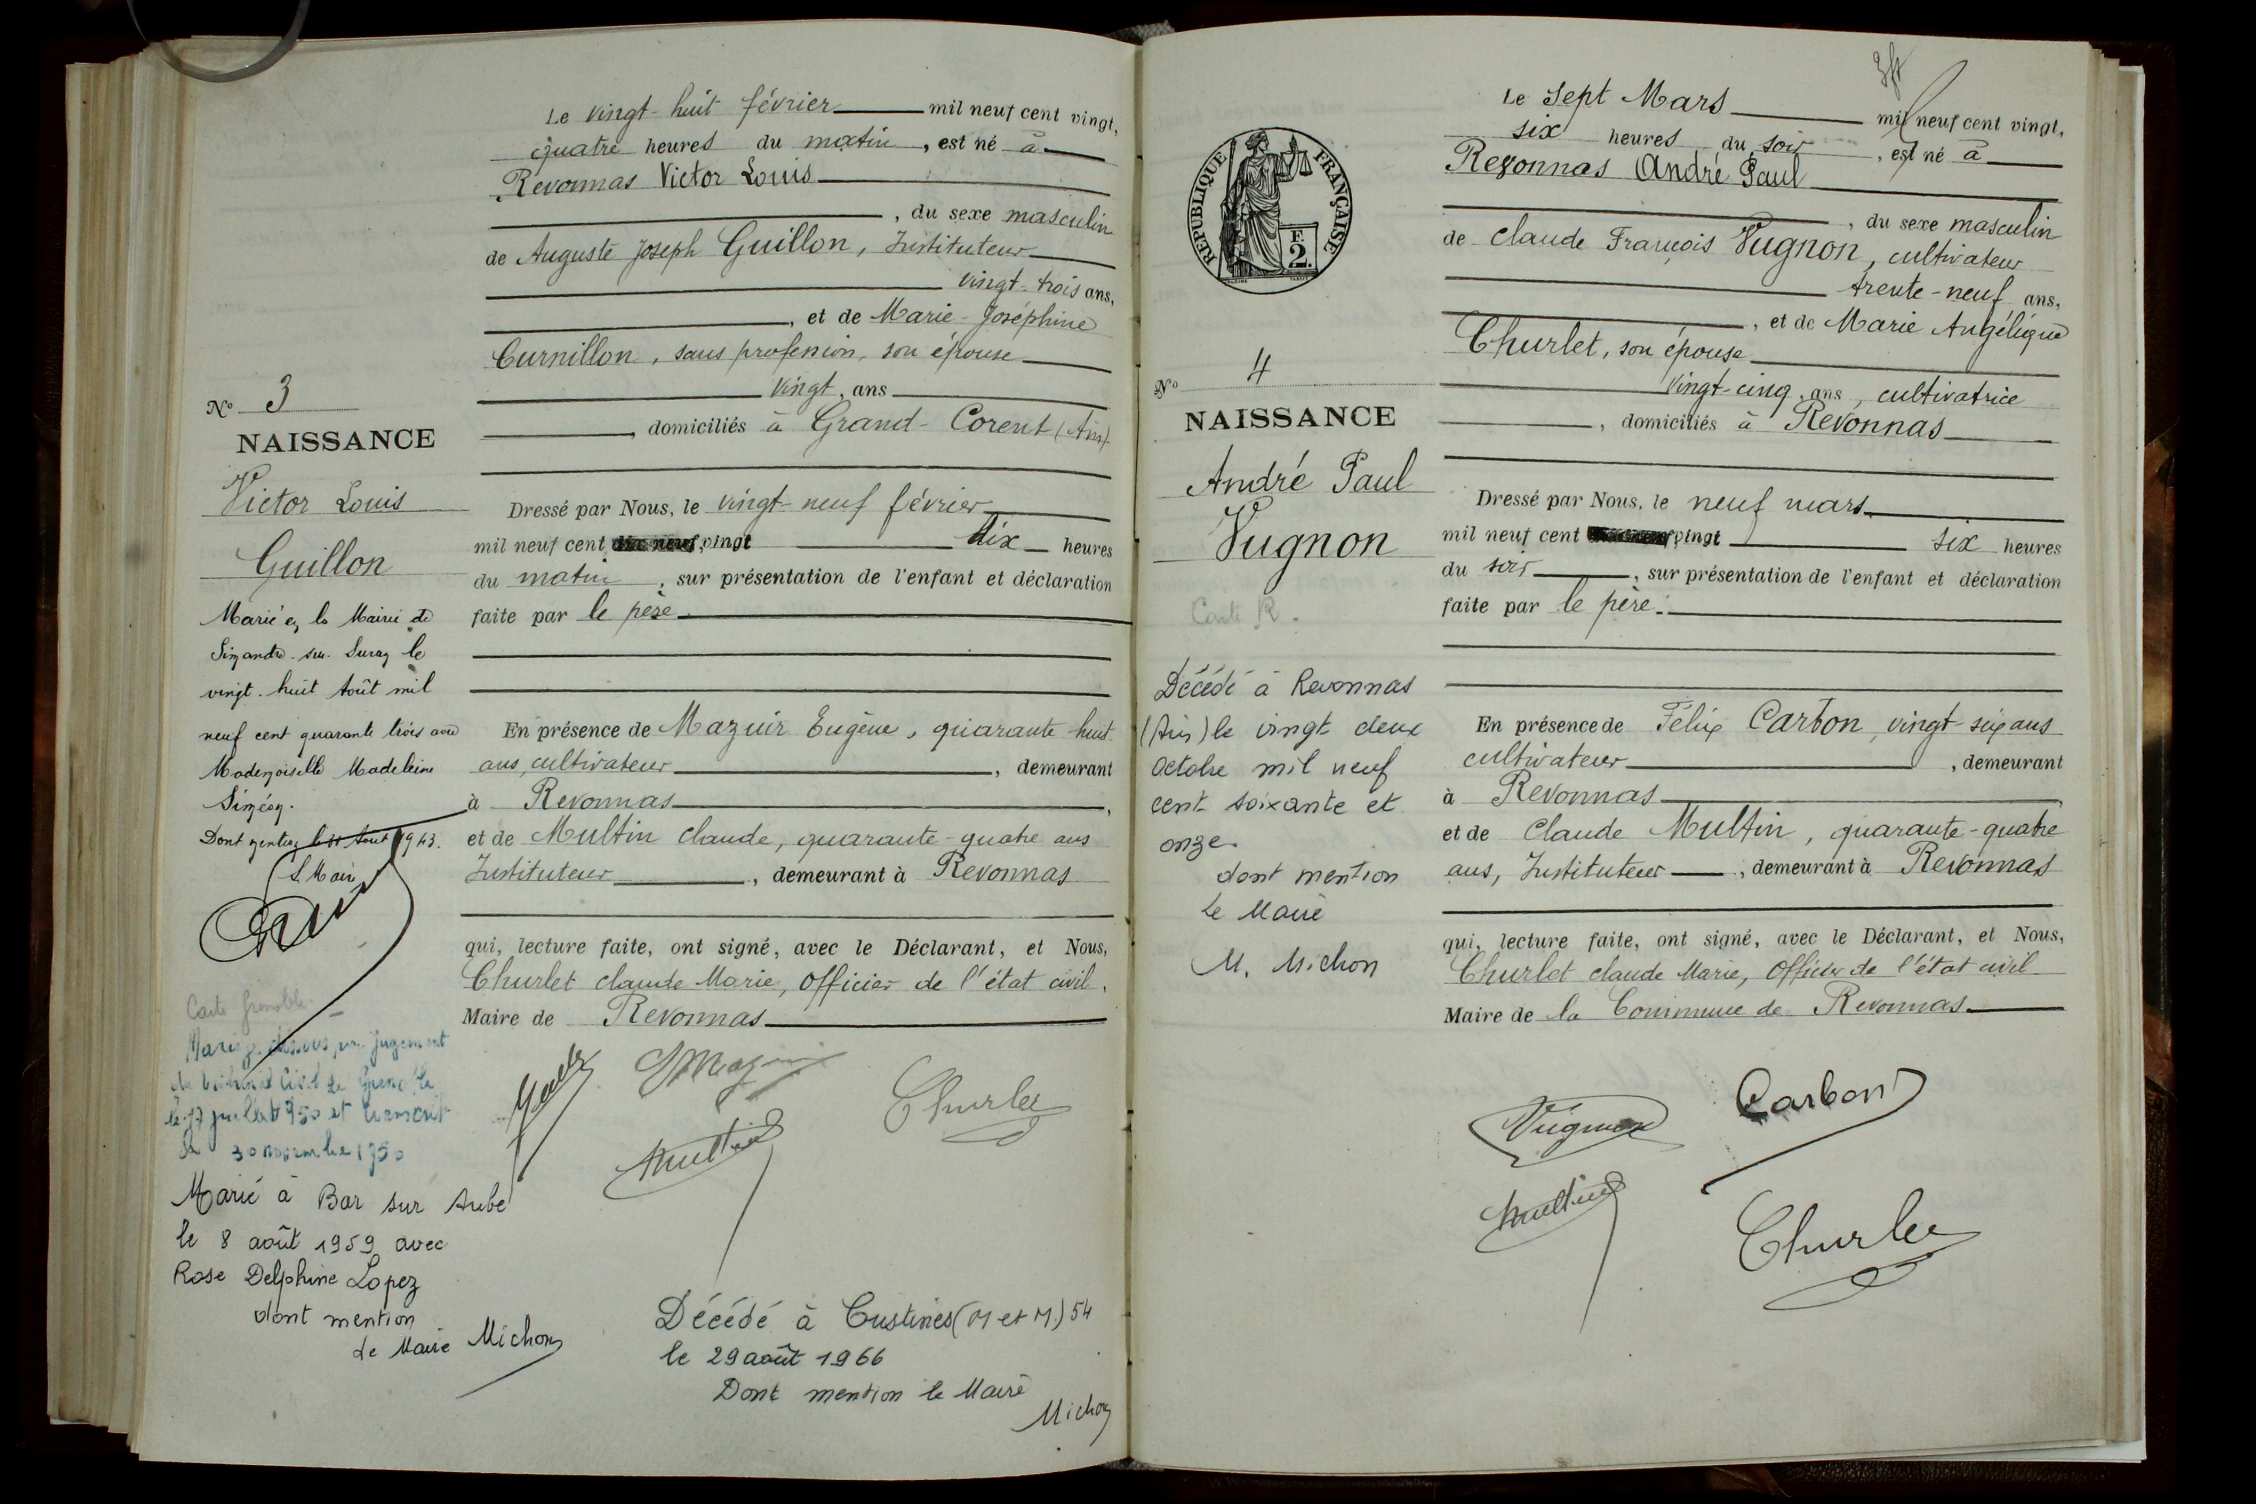 Le vingt-huit février mil neuf cent vingt,
quatre heures du matin, est né à
Revonnas Victor Louis
, du sexe masculin
de Auguste Joseph Guillon, Instituteur
vingt-trois ans,
, et de Marie-Joséphine
Curnillon, sans profession, son épouse
vingt, ans
, domiciliés à Grand-Corent (Ain)
Dressé par Nous, le vingt-neuf février
mil neuf cent vingt dix heures
du matin, sur présentation de l'enfant et déclaration
faite par le père
En présence de Mazuir Eugène, quarante-huit
ans, cultivateur, demeurant
à Revonnas,
et de Multin Claude, quarante-quatre ans
Instituteur, demeurant à Revonnas
qui, lecture faite, ont signé, avec le Déclarant, et Nous,
Churlet Claude Marie, Officier de l'état civil,
Maire de Revonnas
Churlet
Décédé à Custines (M et M.) 54
le 29 août 1966
Dont mention le Maire
Michon
No 3
NAISSANCE
Victor Louis
Guillon
Marié en la Mairie de
Simandre-sur-Suran le
vingt-huit Août mil
neuf cent quarante trois avec
Mademoiselle Madeleine
Dont mention le Août 1943.
Le Maire
Carte Grenoble
Mariage dissous par jugement
du tribunal civil de Grenoble
le 17 juillet 1950 et transcrit
le 30 novembre 1950
Marié à Bar sur Aube
le 8 août 1959 avec
Rose Delphine Lopez
dont mention
Le Maire Michon
REPUBLIQUE FRANÇAISE
2
No 4
NAISSANCE
André Paul
Vugnon
Carte R.
Décédé à Revonnas
(Ain) le vingt deux
Octobre mil neuf
cent soixante et
onze.
dont mention
Le Maire
M. Michon
Le Sept Mars mil neuf cent vingt,
six heures du soir, est né à
Revonnas André Paul
, du sexe masculin
de Claude François Vugnon, cultivateur
trente-neuf ans,
, et de Marie Angélique
Churlet, son épouse
vingt-cinq, ans, cultivatrice
, domiciliés à Revonnas
Dressé par Nous, le neuf mars
mil neuf cent vingt six heures
du soir, sur présentation de l'enfant et déclaration
faite par le père.
En présence de Félix Carbon, vingt-six ans
cultivateur, demeurant
à Revonnas
et de Claude Multin, quarante-quatre
ans, Instituteur, demeurant à Revonnas
qui, lecture faite, ont signé, avec le Déclarant, et Nous,
Churlet Claude Marie, Officier de l'état civil
Maire de la Commune de Revonnas
Vugnon
Carbon
Multin
Churlet